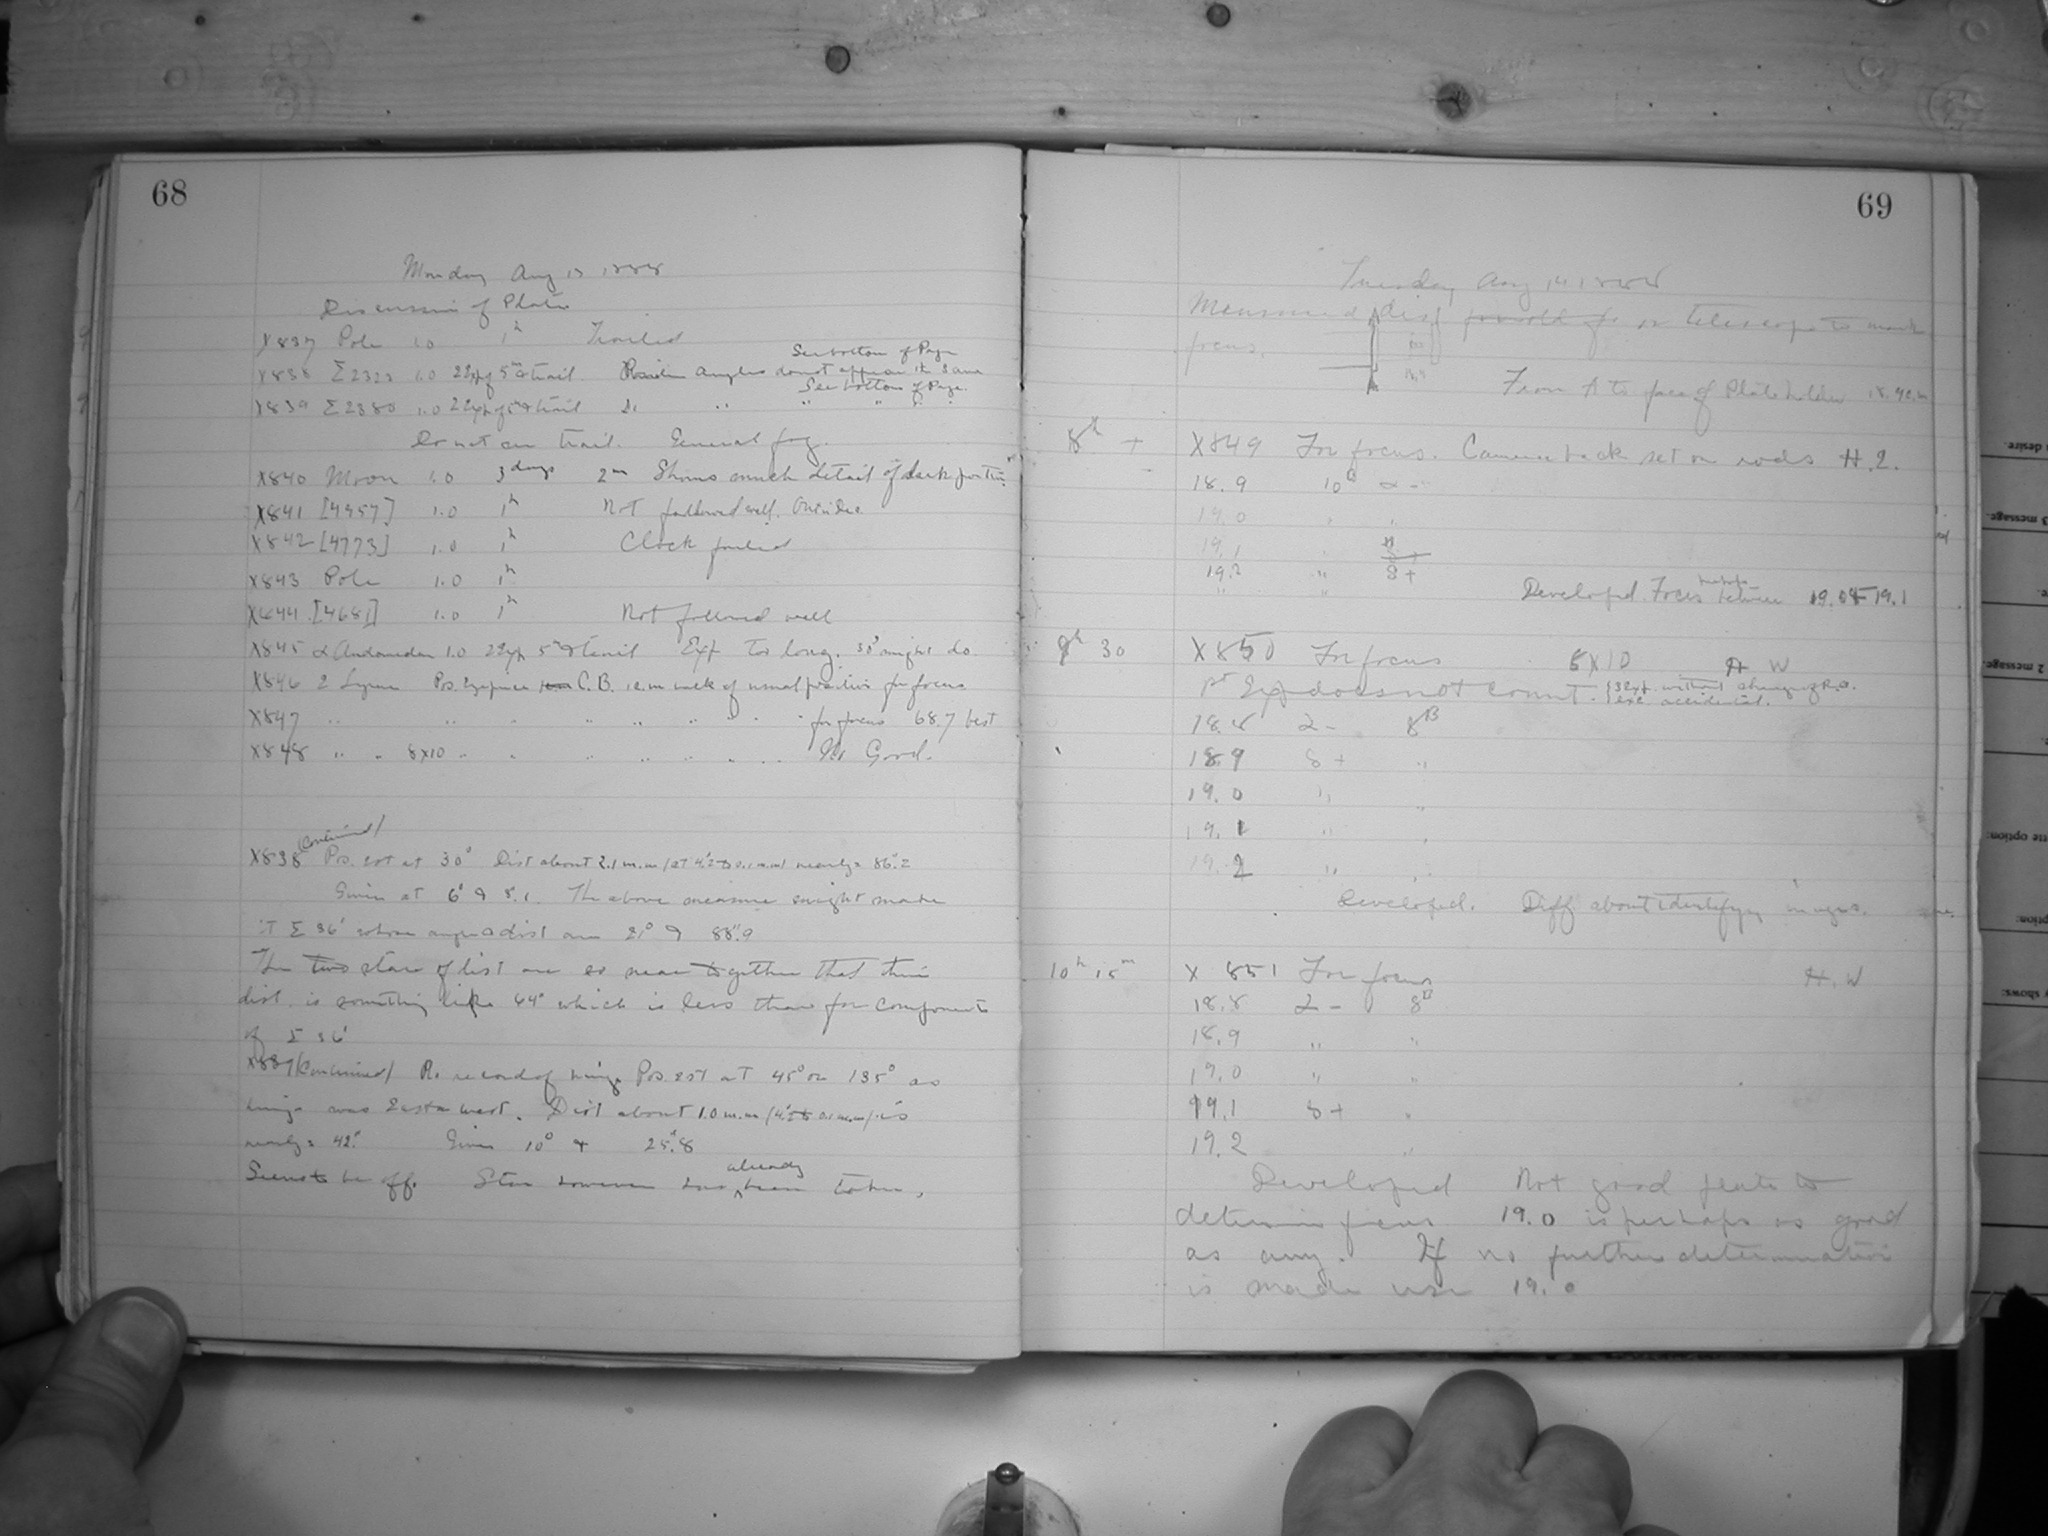 68
Monday Aug 13 1888
Discussion of Plates
X837 Pole 1.0 1h Trailed
See bottom of Page
X838 Σ2323 1.0 2 Exp of 5m & trail Position angles do not appear the same
See bottom of Page.
X839 Σ2380 1.0 2 Exp of & trail " " "
Do not see trail. General fog.
X840 Moon 1.0 3 days 2m Shows much detail of dark portion
X841 [4457] 1.0 1h Not followed well. Outside
X842 [4773] 1.0 1h Clock failed
X843 Pole 1.0 1h
X844 [4681] 1.0 1h Not followed well
X845 α Andromedae 1.0 2 Exp 5m & trail Exp too long. 30s might do.
X846 2 Lyrae Pos. C.B. of usual position for focus
X847 " " " " " " " for focus 68.7 best
X848 " " 8x10 " " " " " " Good.
X838 (Continued) Pos. est at 30° Dist about 2.1 m.m. nearly = 86".2
Given at 6° & 5".1. The above measure might make
it Σ 36' whose angle & dist are 21° & 88".9
The two stars of list are so near together that their
dist. is something like 64" which is less than for components
of Σ 36'
X839 (Continued) No record of hinge Pos. est at 45° or 135° as
hinge was East or west. Dist about 1.0 m.m. is
nearly = 42" Given 10° & 25".8
Seems to be off. Star however has already been taken.
69
Tuesday Aug 14 1888
Measured dist on telescope to mark
focus.
From A to face of Plateholder
8h + X849 For focus. Camera back set on rods H.2.
18.9 10B 2 -
19.0 " "
19.1 "
19.2 " 8 +
" "
Developed. Focus perhaps between 19.05 & 19.1
9h 30 X850 For focus 8X10 H W
1st Exp does not count. {3 Exp. without change of R.A. exc. accidental.
18.8 2 - 8B
18.9 8 + "
19.0 " "
19.1 " "
19.2 " "
Developed. Diff about identifying images.
10h 15m X 851 For focus H. W
18.8 2 - 8B
18.9 " "
19.0 " "
19.1 8 + "
19.2 "
Developed Not good plate to
determine focus 19.0 is perhaps as good
as any. If no further determination
is made use 19.0
desire.
3 message.
2 message.
option:
shows: